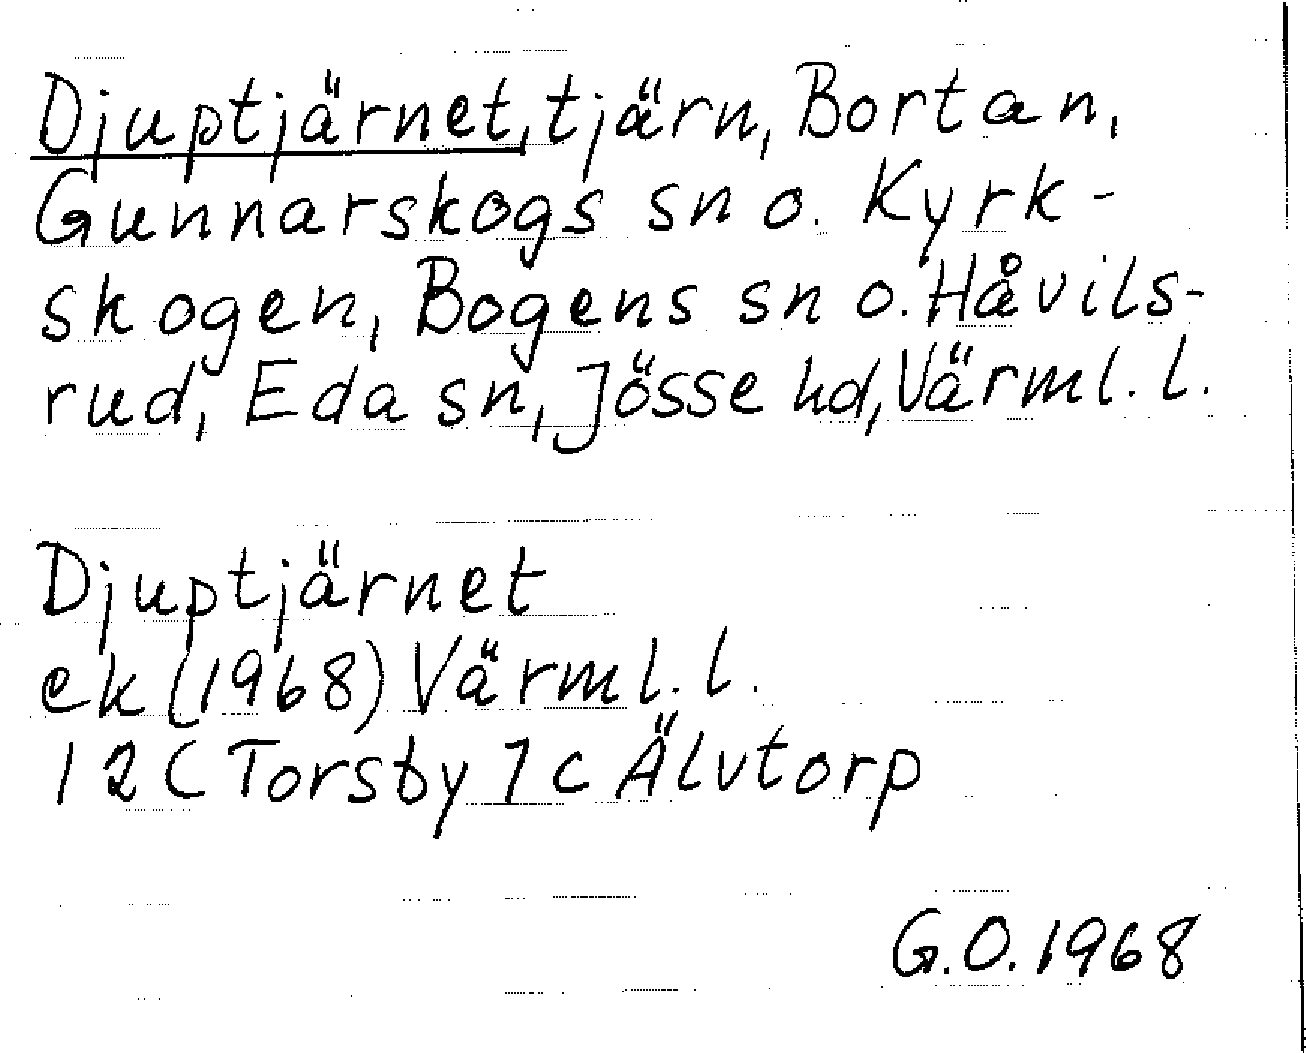 Djuptjärnet, tjärn, Bortan,
Gunnarskogs sn o. Kyrk-
skogen, Bogens sn o. Håvils-
rud, Eda sn, Jösse hd, Värml. l.
Djuptjärnet
ek (1968) Värml. l.
12 C Torsby 1 c Älvtorp
G.O. 1968